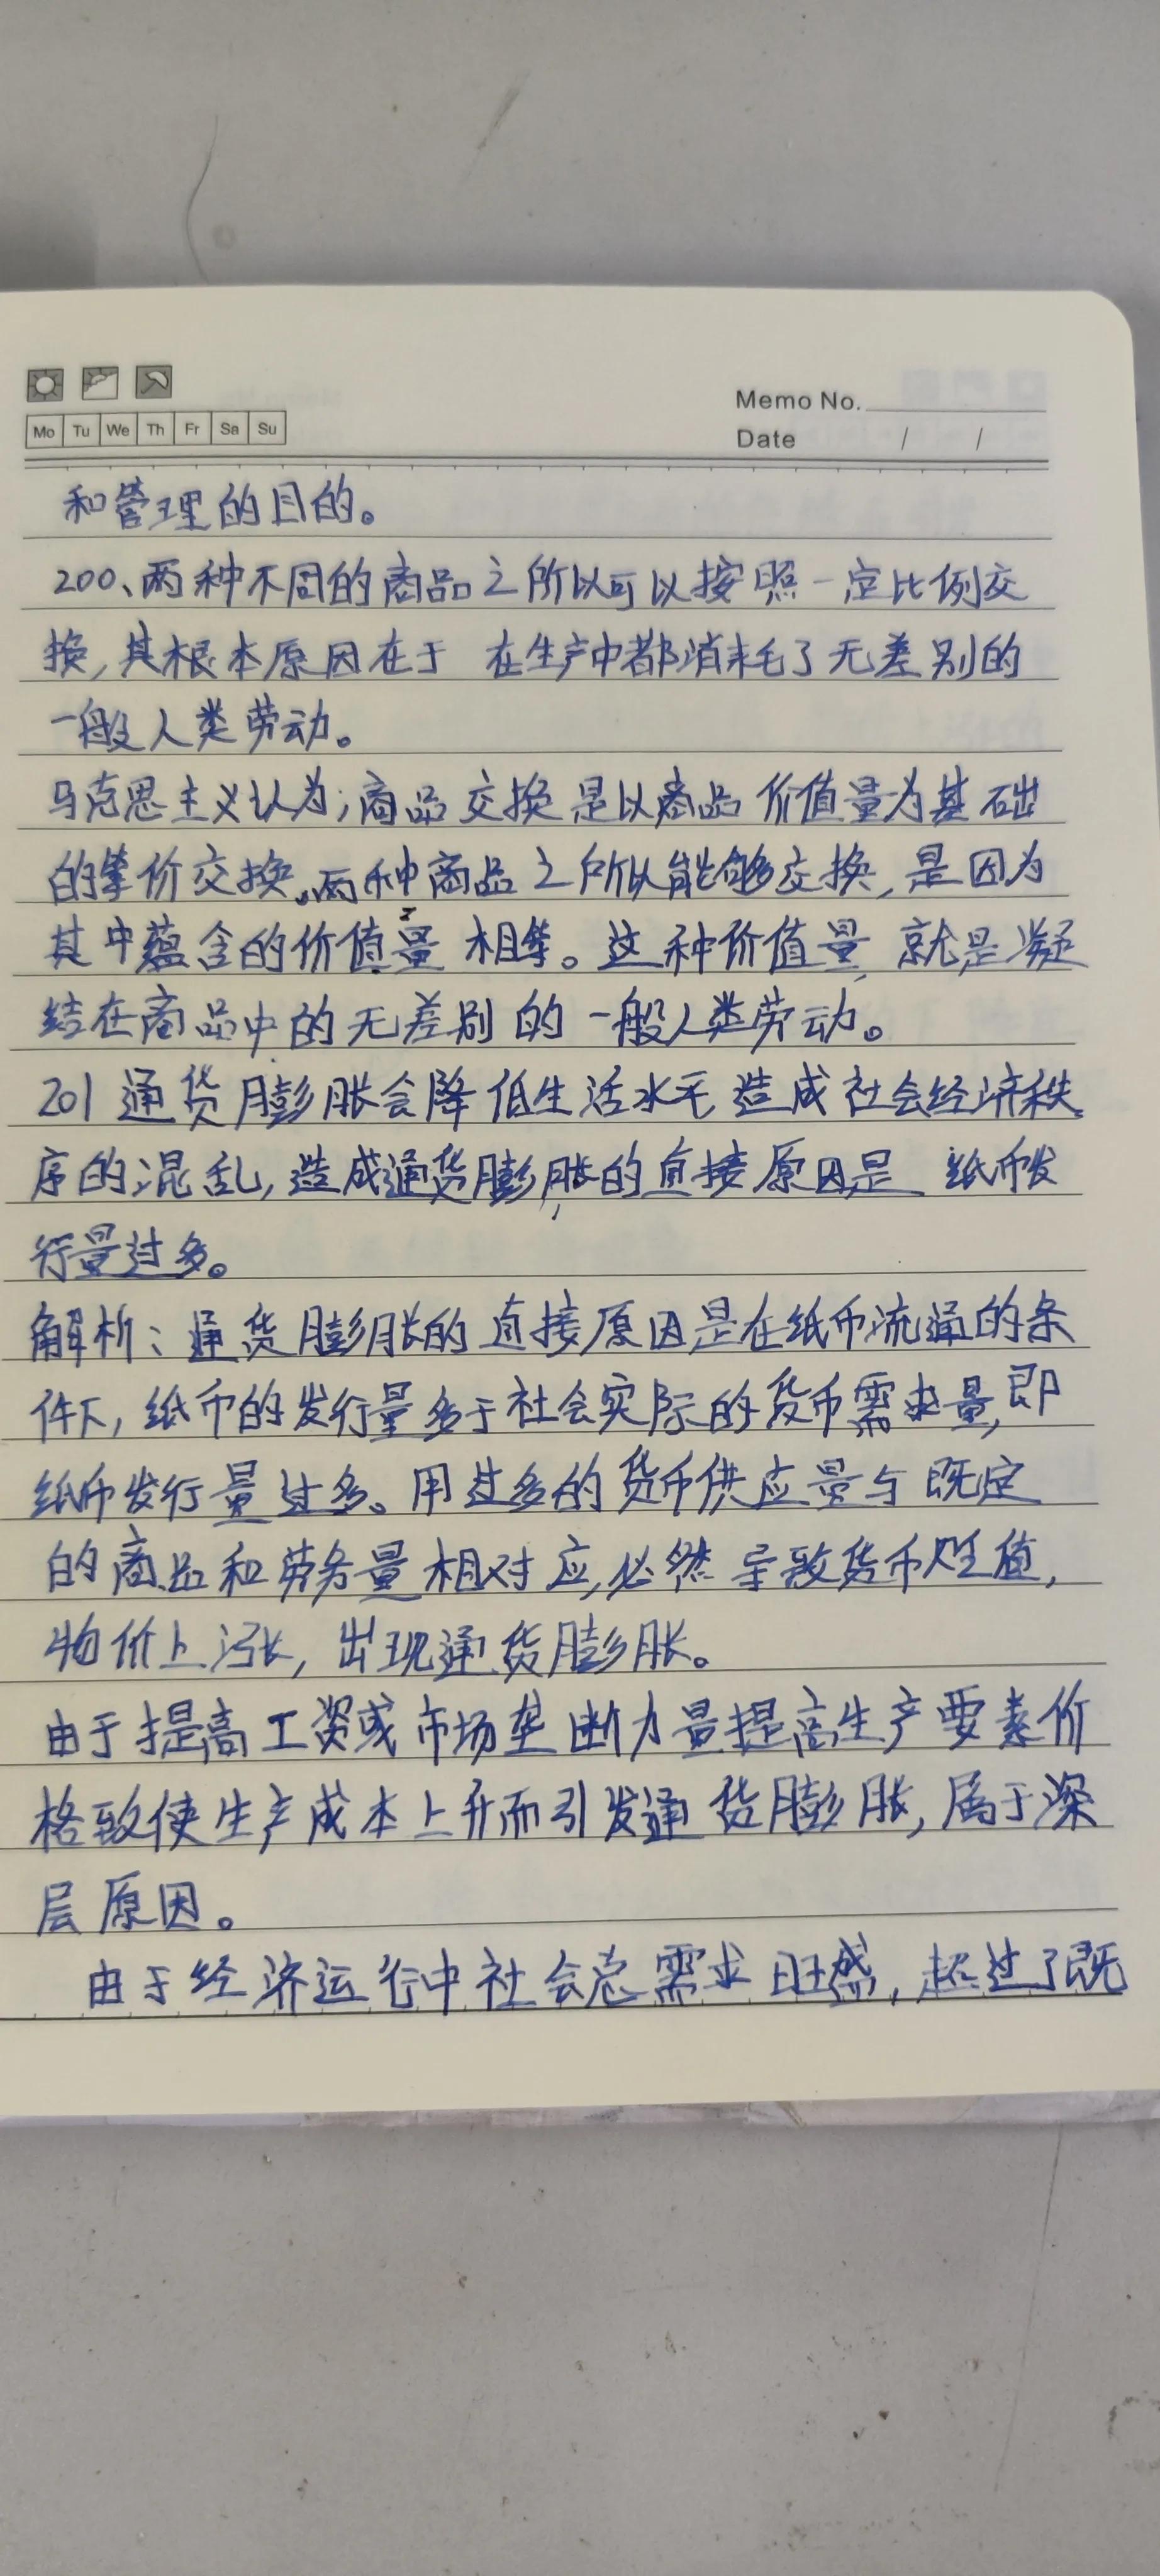 Mo Tu We Th Fr Sa Su
Memo No.
Date / /
和管理的目的。
200、两种不同的商品之所以可以按照一定比例交
换,其根本原因在于 在生产中都消耗了无差别的
一般人类劳动。
马克思主义认为;商品交换是以商品价值量为基础
的等价交换。两种商品之所以能够交换,是因为
其中蕴含的价值量相等。这种价值量,就是凝
结在商品中的无差别的一般人类劳动。
201 通货膨胀会降低生活水平 造成社会经济秩
序的混乱,造成通货膨胀的直接原因是 纸币发
行量过多。
解析:通货膨胀的直接原因是在纸币流通的条
件下,纸币的发行量多于社会实际的货币需求量,即
纸币发行量过多。用过多的货币供应量与既定
的商品和劳务量相对应,必然导致货币贬值,
物价上涨,出现通货膨胀。
由于提高工资或市场垄断力量提高生产要素价
格致使生产成本上升而引发通货膨胀,属于深
层原因。
由于经济运行中社会总需求旺盛,超过了既